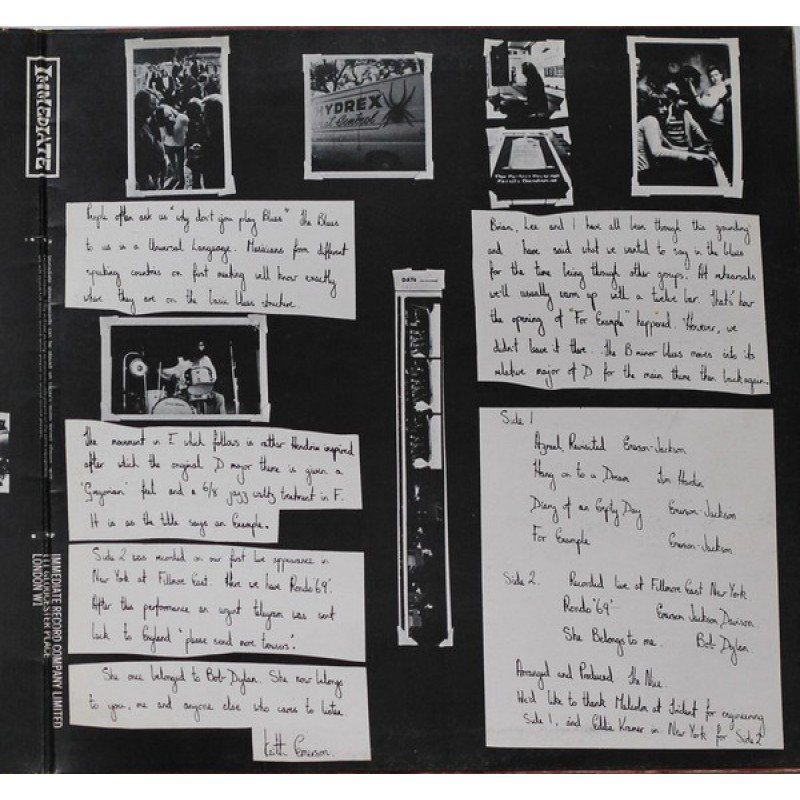 IMMEDIATE
HYDREX
Pest Control
People often ask us "why don't you play Blues" The Blues
to us is a Universal Language. Musicians from different
speaking countries on first meeting will know exactly
where they are on the basic blues structure.
Brian, Lee and I have all been through this grounding
and have said what we wanted to say in the blues
for the time being through other groups. At rehearsals
we'll usually warm up with a twelve bar. That's how
the opening of "For Example" happened. However, we
didn't leave it there. The B minor blues moves into its
relative major of D for the main theme then back again.
DATE
The movement in E which follows is rather Hendrix inspired
after which the original D major theme is given a
'Greyman' feel and a 6/8 jazz waltz treatment in F.
It is as the title says an Example.
Side 2 was recorded on our first live appearance in
New York at Fillmore East. Here we have Rondo '69'.
After this performance an urgent telegram was sent
back to England "please send more trousers".
She once belonged to Bob Dylan. She now belongs
to you, me and anyone else who cares to listen
Keith Emerson.
Side 1
Azrael, Revisited Emerson-Jackson
Hang on to a Dream Tim Hardin
Diary of an Empty Day Emerson-Jackson
For Example Emerson-Jackson
Side 2. Recorded live at Fillmore East New York
Rondo "69" Emerson Jackson Davison.
She Belongs to me. Bob Dylan
Arranged and Produced The Nice
We'd like to thank Malcolm at Trident for engineering
Side 1, and Eddie Kramer in New York for Side 2
IMMEDIATE RECORD COMPANY LIMITED
111 GLOUCESTER PLACE
LONDON W1